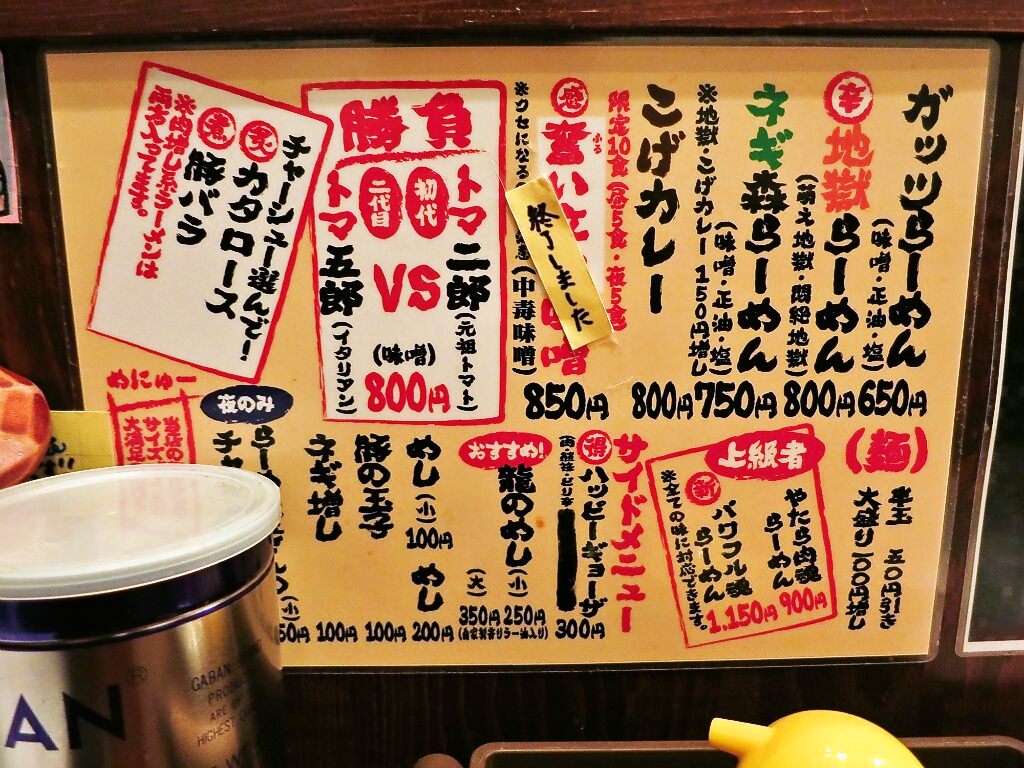 ガッツらーめん
(味噌・正油・塩)
650円
辛 地獄らーめん
(萌え地獄・悶絶地獄)
800円
ネギ森らーめん
(味噌・正油・塩)
750円
※地獄・こげカレー150円増し
こげカレー
800円
限定10食(昼5食・夜5食)
い
噌
850円
※クセになる
(中毒味噌)
終了しました
勝負
トマ二郎(元祖トマト)
初代
VS
二代目
トマ五郎(イタリアン)
(味噌)
800円
チャーシュー選んで!
カタロース
煮 豚バラ
※肉増し系ラーメンは
両方入ってます。
(麺)
半玉 五〇円引き
大盛り 一〇〇円増し
上級者
やたら肉魂
らーめん
900円
新 パワフル魂
らーめん
1.150円
※全ての味に対応できます。
サイドメニュー
得 ハッピーギョーザ
300円
おすすめ!
龍のめし(小)
250円
(大)
350円
めし(小)
100円
めし
200円
豚の玉子
100円
ネギ増し
100円
夜のみ
(小)
50円
めにゅー
当店の
サイズ
GABAN
AN
®